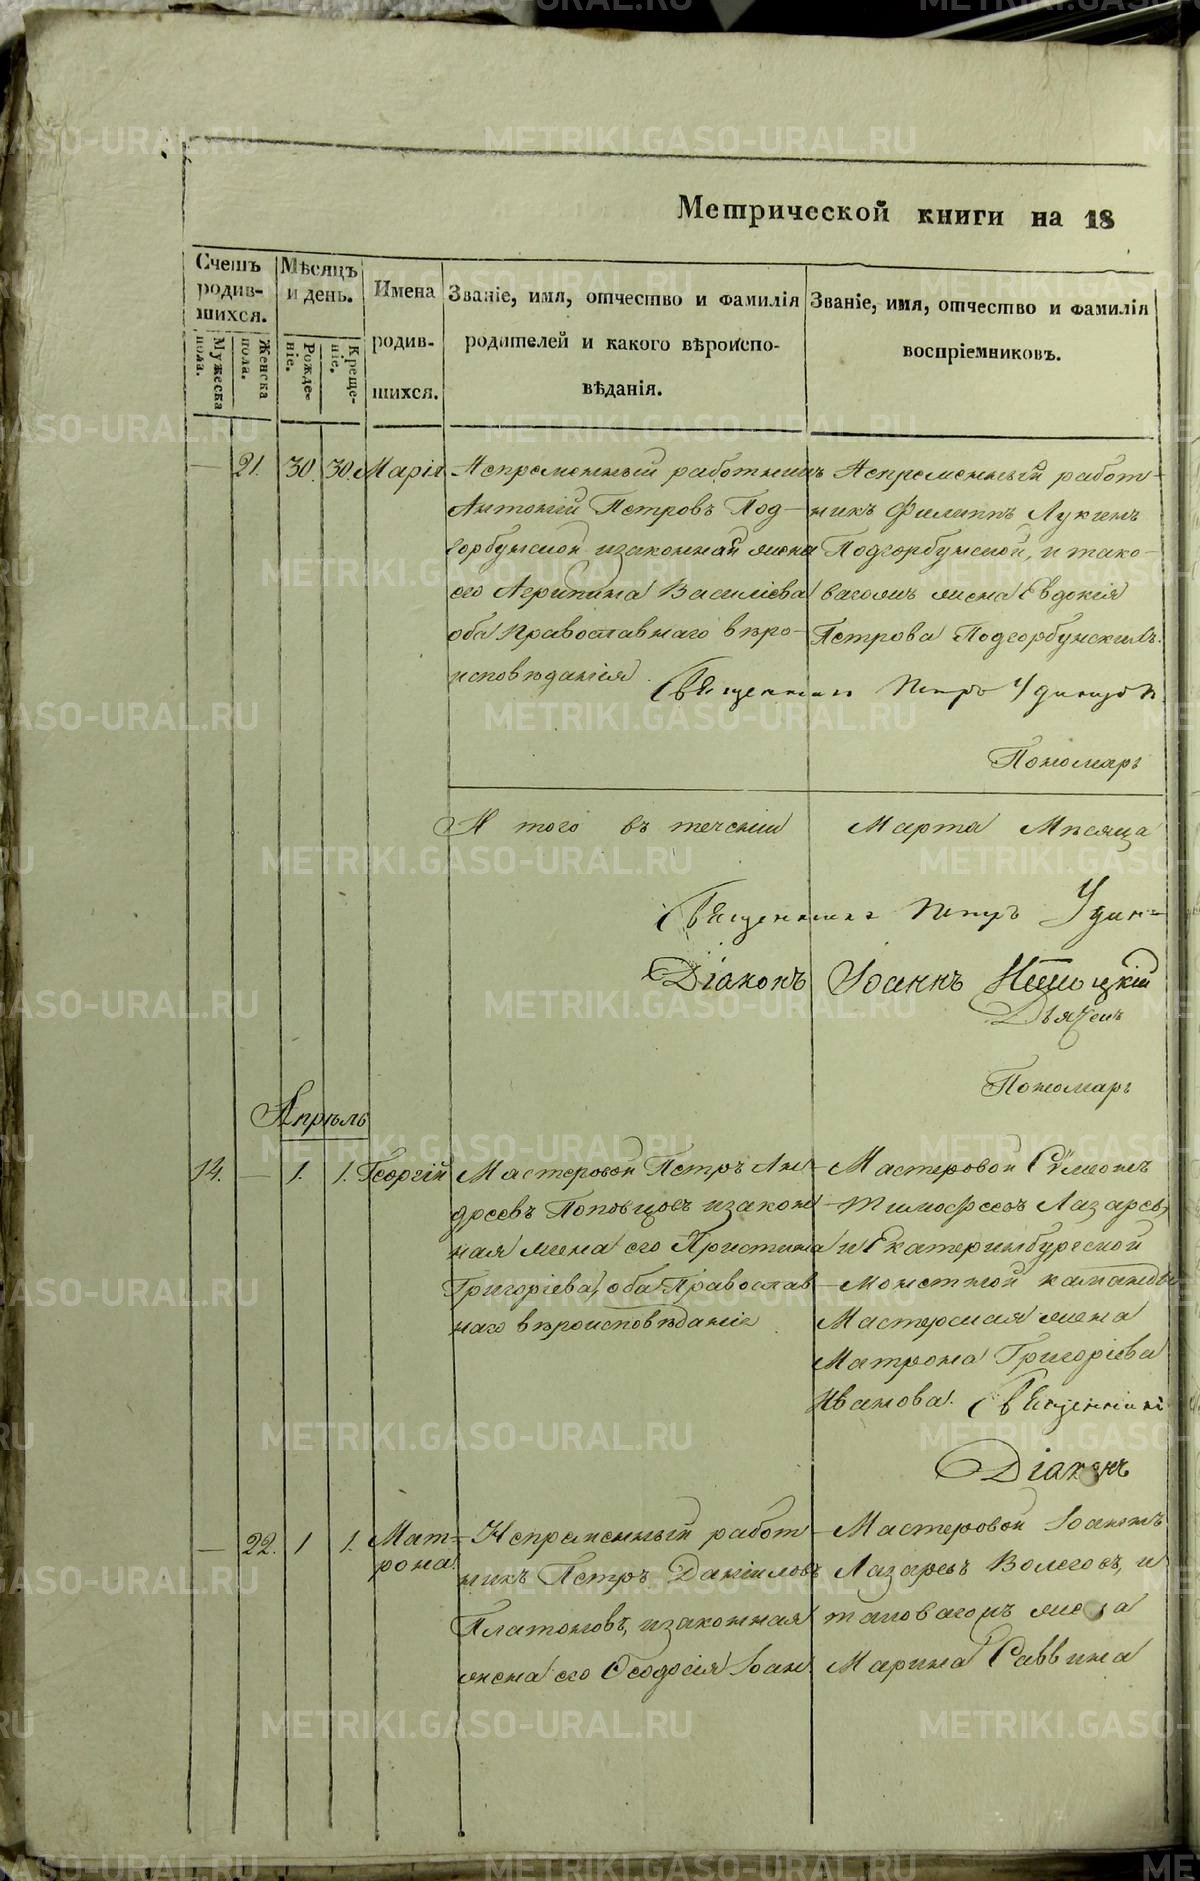 Метрической книги на 18
Счетъ родив- шихся.
Мѣсяцъ и день.
Имена родив- шихся.
Званіе, имя, отчество и фамилія родителей и какого вѣроиспо- вѣданія.
Званіе, имя, отчество и фамилія воспріемниковъ.
Мужеска пола.
Женска пола.
Рожде- ніе.
Креще- ніе.
— 21. 30. 30. Марія
Непременный работникъ
Антоній Петровъ Под-
горбунской изаконная жена
его Агрипина Василіева
оба Православнаго вѣро-
исповѣданія.
Непременный работ-
никъ Филиппъ Лукинъ
Подгорбунской, и тако-
вагожъ жена Евдокія
Петрова Подгорбунскихъ.
Священникъ Петръ Удинцовъ
Пономарь
И того въ теченіи Марта Мѣсяца
Священникъ Петръ Удин-
Діаконъ Іоаннъ
Дьячекъ
Пономарь
Апрѣль
14. — 1. 1. Георгій
Мастеровой Петръ Ан-
дреевъ Поповцовъ изакон-
ная жена его Христина
Григоріева, оба Православ-
наго вѣроисповѣданія
Мастеровой Симеонъ
Тимофеевъ Лазаревъ,
и Екатеринбургской
монетной каманды
Мастерская жена
Матрона Григоріева
Иванова. Священникъ
Діаконъ
— 22. 1 1. Мат-
рона.
Непременный работ-
никъ Петръ Даніиловъ
Платоновъ, изаконная
жена его Ѳеодосія Іоан
Мастеровой Іоаннъ
Лазаревъ Волеговъ, и
таковагожъ жена
Марина Саввина